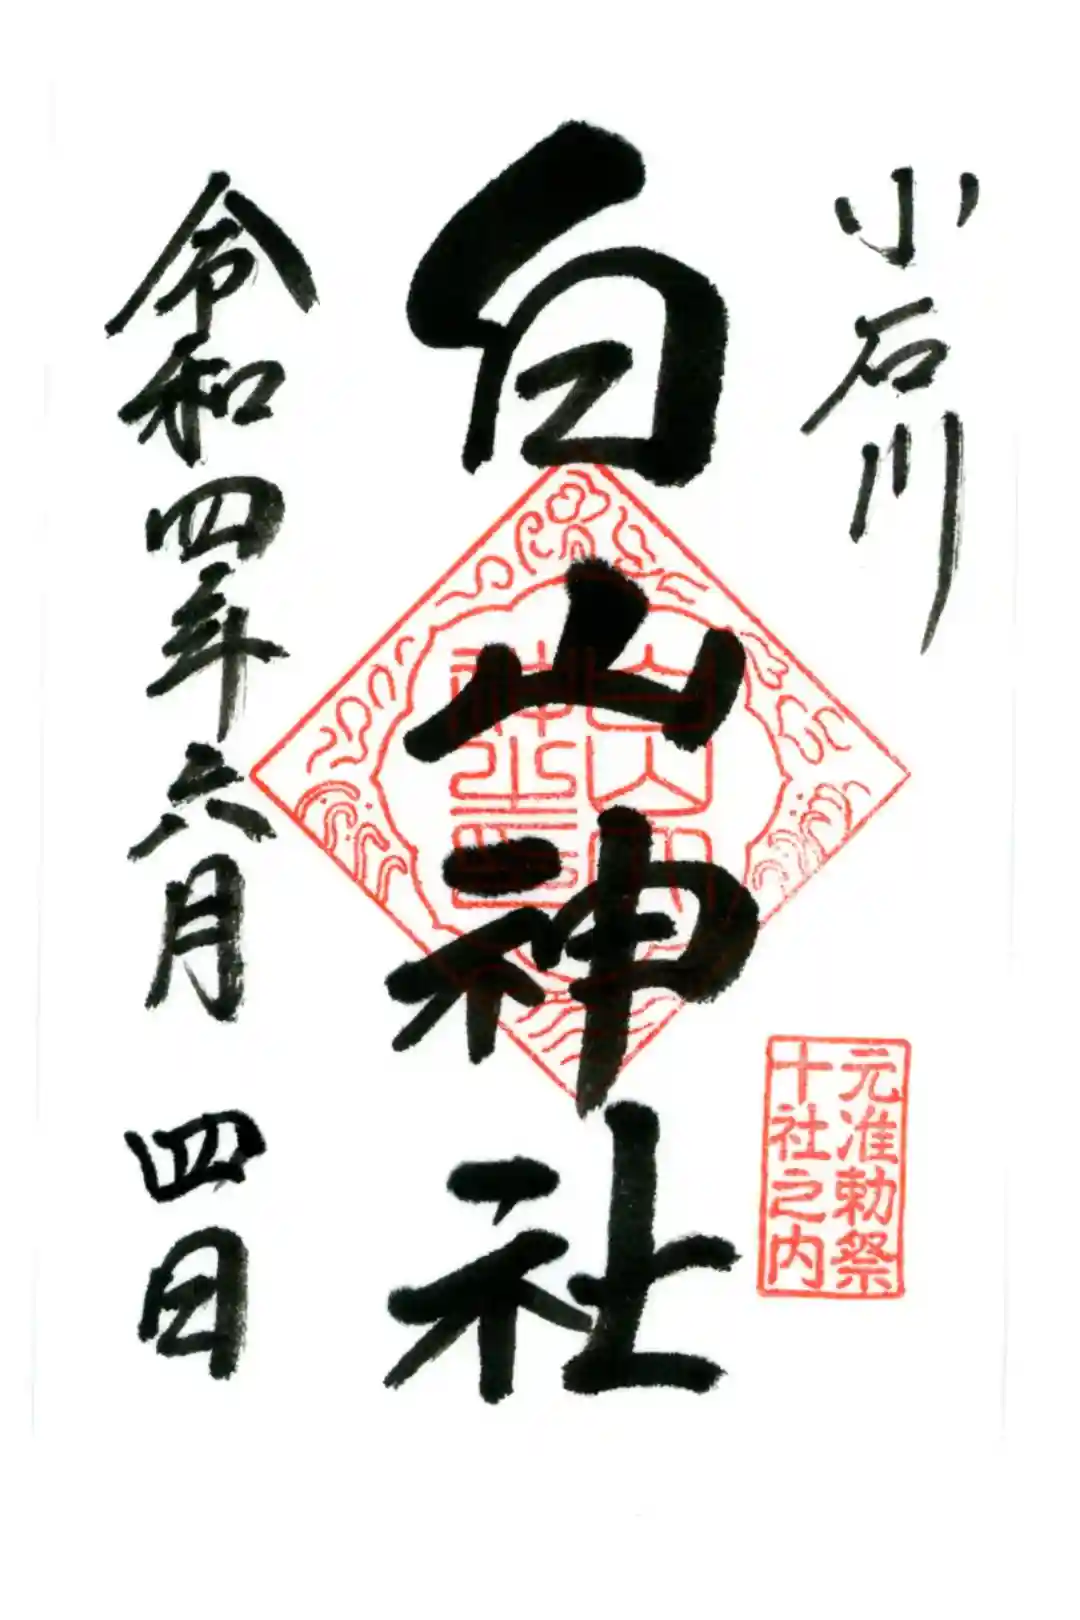 小石川
白山神社
白山
神社
元准勅祭
十社之内
令和四年六月 四日